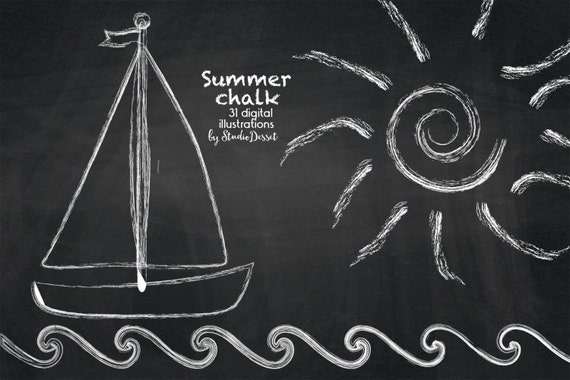 Summer
chalk
31 digital
illustrations
by StudioDesset